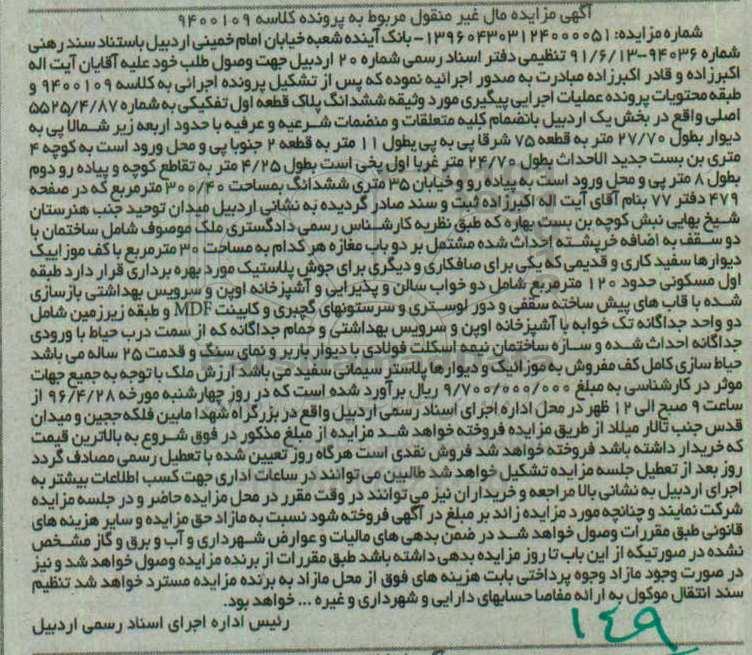 آگهی مزایده مال غیر منقول مربوط به پرونده کلاسه ۹۴۰۰۱۰۹
شماره مزایده: ۱۳۹۶۰۴۳۰۳۱۲۴۰۰۰۰۵۱- بانک آینده شعبه خیابان امام خمینی اردبیل باستناد سند رهنی
شماره ۹۴۰۳۶-۹۱/۶/۱۳ تنظیمی دفتر اسناد رسمی شماره ۲۰ اردبیل جهت وصول طلب خود علیه آقایان آیت اله
اکبرزاده و قادر اکبرزاده مبادرت به صدور اجرائیه نموده که پس از تشکیل پرونده اجرائی به کلاسه ۹۴۰۰۱۰۹ و
طبقه محتویات پرونده عملیات اجرایی پیگیری مورد وثیقه ششدانگ پلاک قطعه اول تفکیکی به شماره ۵۵۲۵/۴/۸۷
اصلی واقع در بخش یک اردبیل بانضمام کلیه متعلقات و منضمات شرعیه و عرفیه با حدود اربعه زیر شمالا پی به
دیوار بطول ۲۷/۷۰ متر به قطعه ۷۵ شرقا پی به پی بطول ۱۱ متر به قطعه ۲ جنوبا پی و محل ورود است به کوچه ۴
متری بن بست جدید الاحداث بطول ۲۴/۷۰ متر غربا اول پخی است بطول ۴/۲۵ متر به تقاطع کوچه و پیاده رو دوم
بطول ۸ متر پی و محل ورود است به پیاده رو و خیابان ۳۵ متری ششدانگ بمساحت ۳۰۰/۴۰ مترمربع که در صفحه
۴۷۹ دفتر ۷۷ بنام آقای آیت اله اکبرزاده ثبت و سند صادر گردیده به نشانی اردبیل میدان توحید جنب هنرستان
شیخ بهایی نبش کوچه بن بست بهاره که طبق نظریه کارشناس رسمی دادگستری ملک موصوف شامل ساختمان با
دو سقف به اضافه خرپشته احداث شده مشتمل بر دو باب مغازه هر کدام به مساحت ۳۰ مترمربع با کف موزاییک
دیوارها سفید کاری و قدیمی که یکی برای صافکاری و دیگری برای جوش پلاستیک مورد بهره برداری قرار دارد طبقه
اول مسکونی حدود ۱۲۰ مترمربع شامل دو خواب سالن و پذیرایی و آشپزخانه اوپن و سرویس بهداشتی بازسازی
شده با قاب های پیش ساخته سقفی و دور لوستری و سرستونهای گچبری و کابینت MDF و طبقه زیرزمین شامل
دو واحد جداگانه تک خوابه با آشپزخانه اوپن و سرویس بهداشتی و حمام جداگانه که از سمت درب حیاط با ورودی
جداگانه احداث شده و سازه ساختمان نیمه اسکلت فولادی با دیوار باربر و نمای سنگ و قدمت ۲۵ ساله می باشد
حیاط سازی کامل کف مفروش به موزائیک و دیوارها پلاستر سیمانی سفید می باشد ارزش ملک با توجه به جمیع جهات
موثر در کارشناسی به مبلغ ۹/۷۰۰/۰۰۰/۰۰۰ ریال برآورد شده است که در روز چهارشنبه مورخه ۹۶/۴/۲۸ از
ساعت ۹ صبح الی ۱۲ ظهر در محل اداره اجرای اسناد رسمی اردبیل واقع در بزرگراه شهدا مابین فلکه ججین و میدان
قدس جنب تالار میلاد از طریق مزایده فروخته خواهد شد مزایده از مبلغ مذکور در فوق شروع به بالاترین قیمت
که خریدار داشته باشد فروخته خواهد شد فروش نقدی است هرگاه روز تعیین شده با تعطیل رسمی مصادف گردد
روز بعد از تعطیل جلسه مزایده تشکیل خواهد شد طالبین می توانند در ساعات اداری جهت کسب اطلاعات بیشتر به
اجرای اردبیل به نشانی بالا مراجعه و خریداران نیز می توانند در وقت مقرر در محل مزایده حاضر و در جلسه مزایده
شرکت نمایند و چنانچه مورد مزایده زائد بر مبلغ در آگهی فروخته شود نسبت به مازاد حق مزایده و سایر هزینه های
قانونی طبق مقررات وصول خواهد شد در ضمن بدهی های مالیات و عوارض شهرداری و آب و برق و گاز مشخص
نشده در صورتیکه از این باب تا روز مزایده بدهی داشته باشد طبق مقررات از برنده مزایده وصول خواهد شد و نیز
در صورت وجود مازاد وجوه پرداختی بابت هزینه های فوق از محل مازاد به برنده مزایده مسترد خواهد شد تنظیم
سند انتقال موکول به ارائه مفاصا حسابهای دارایی و شهرداری و غیره ... خواهد بود.
رئیس اداره اجرای اسناد رسمی اردبیل
۱۴۹